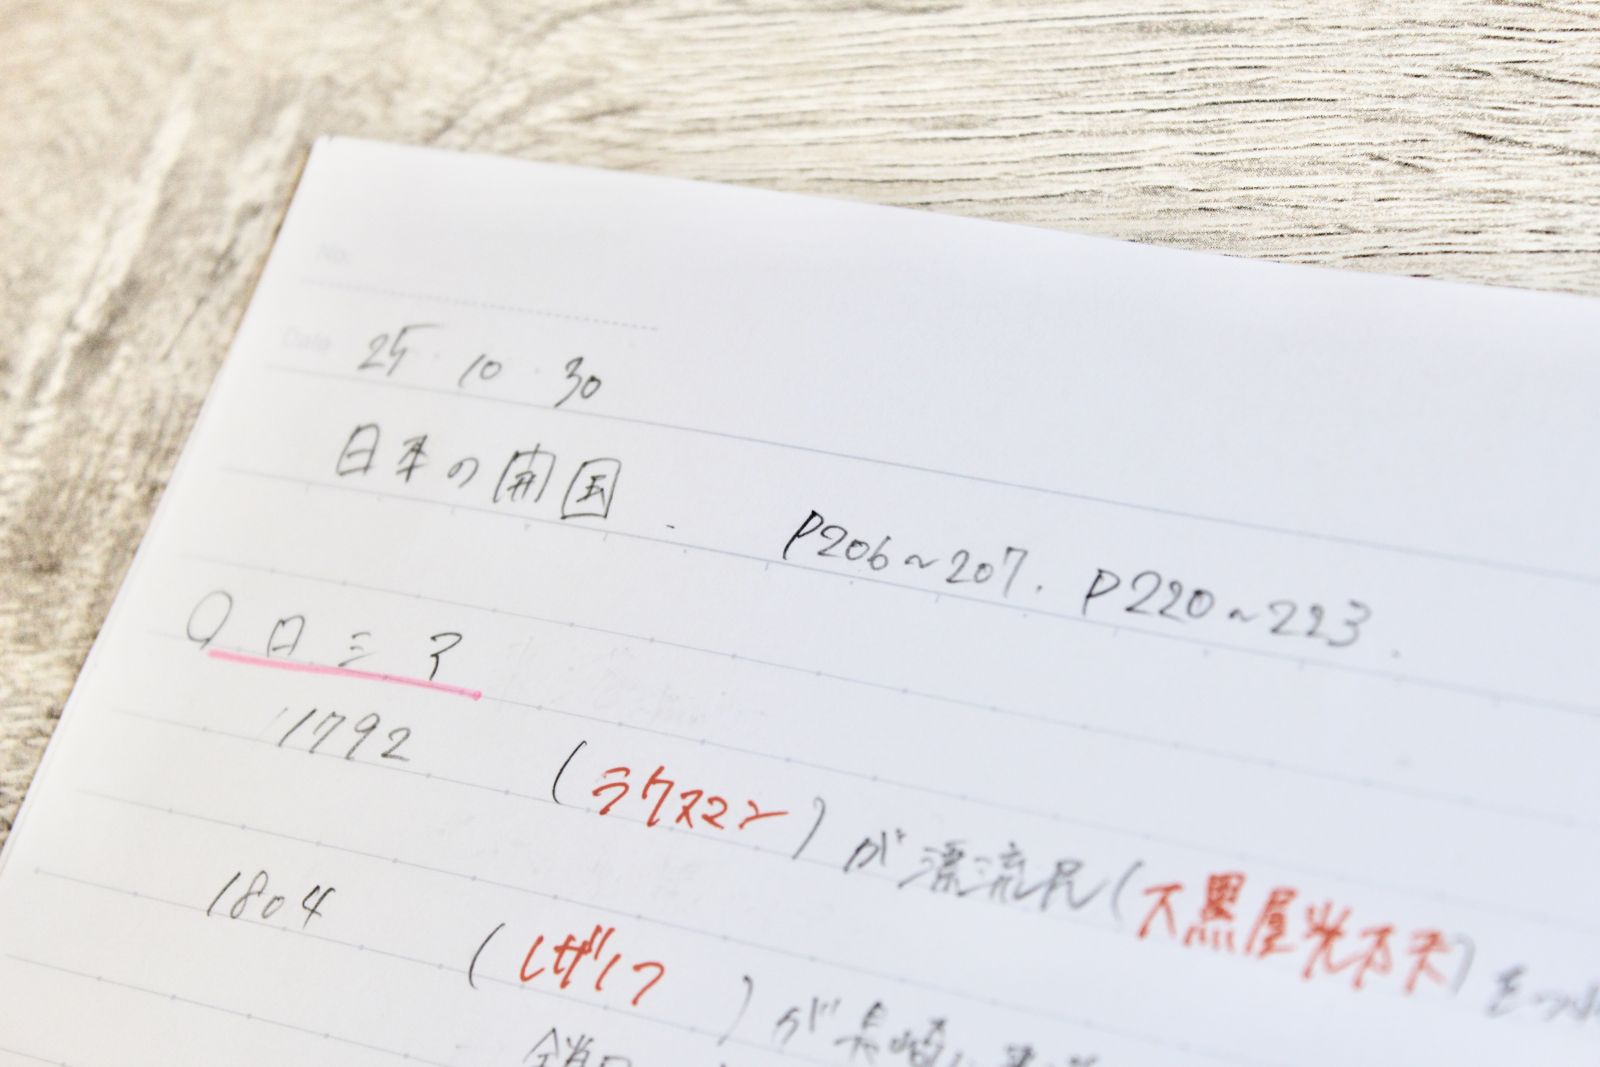 No.
Date 25・10・30
日本の開国. P206~207. P220~223.
○ロシア
1792 (ラクスマン)が漂流民(大黒屋光太夫)をつれ
1804 (レザノフ)が長崎に
鎖国